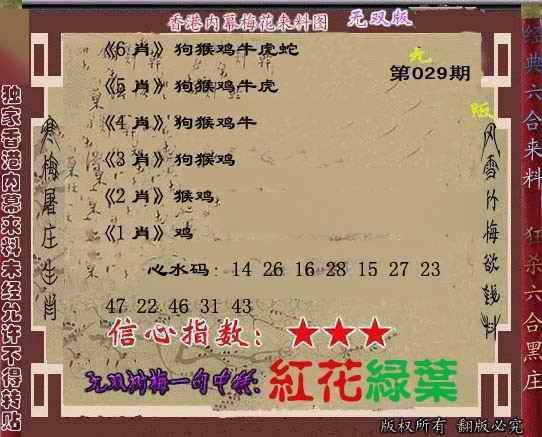 香港内幕梅花来料图 无双版
《6 肖》狗猴鸡牛虎蛇
无
第029期
《5 肖》狗猴鸡牛虎
版
《4 肖》狗猴鸡牛
《3 肖》狗猴鸡
《2 肖》猴鸡
《1 肖》鸡
心水码: 14 26 16 28 15 27 23
47 22 46 31 43
信心指数: ★★★
一句中特:
紅花綠葉
版权所有 翻版必究
独家香港内幕来料未经允许不得转贴
寒梅屠庄生肖
经典六合来料
狂杀六合黑庄